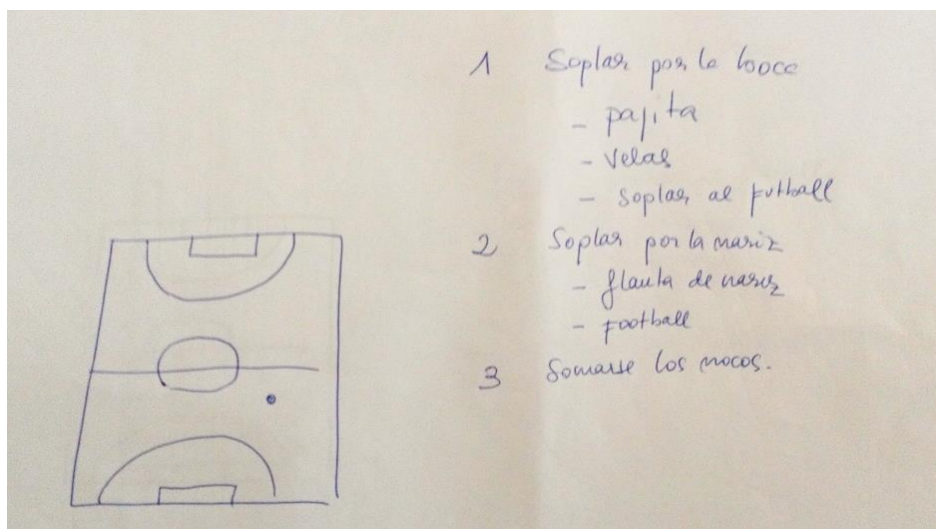 1 Soplar por la boca
- pajita
- velas
- Soplar al futball
2 Soplar por la nariz
- flauta de nariz
- football
3 Sonarse los mocos.